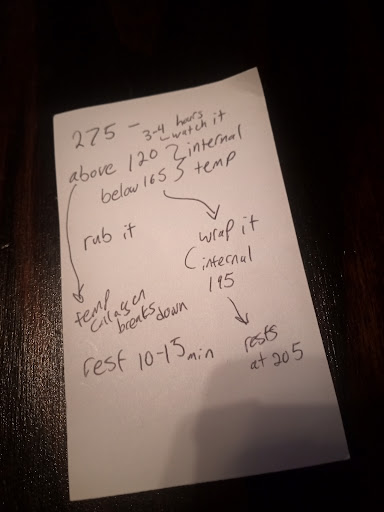 275 - 3-4 hours
watch it
above 120 } internal
below 165 } temp
rub it
wrap it
internal
195
temp
collagen
breaks down
rest 10-15 min
rests
at 205